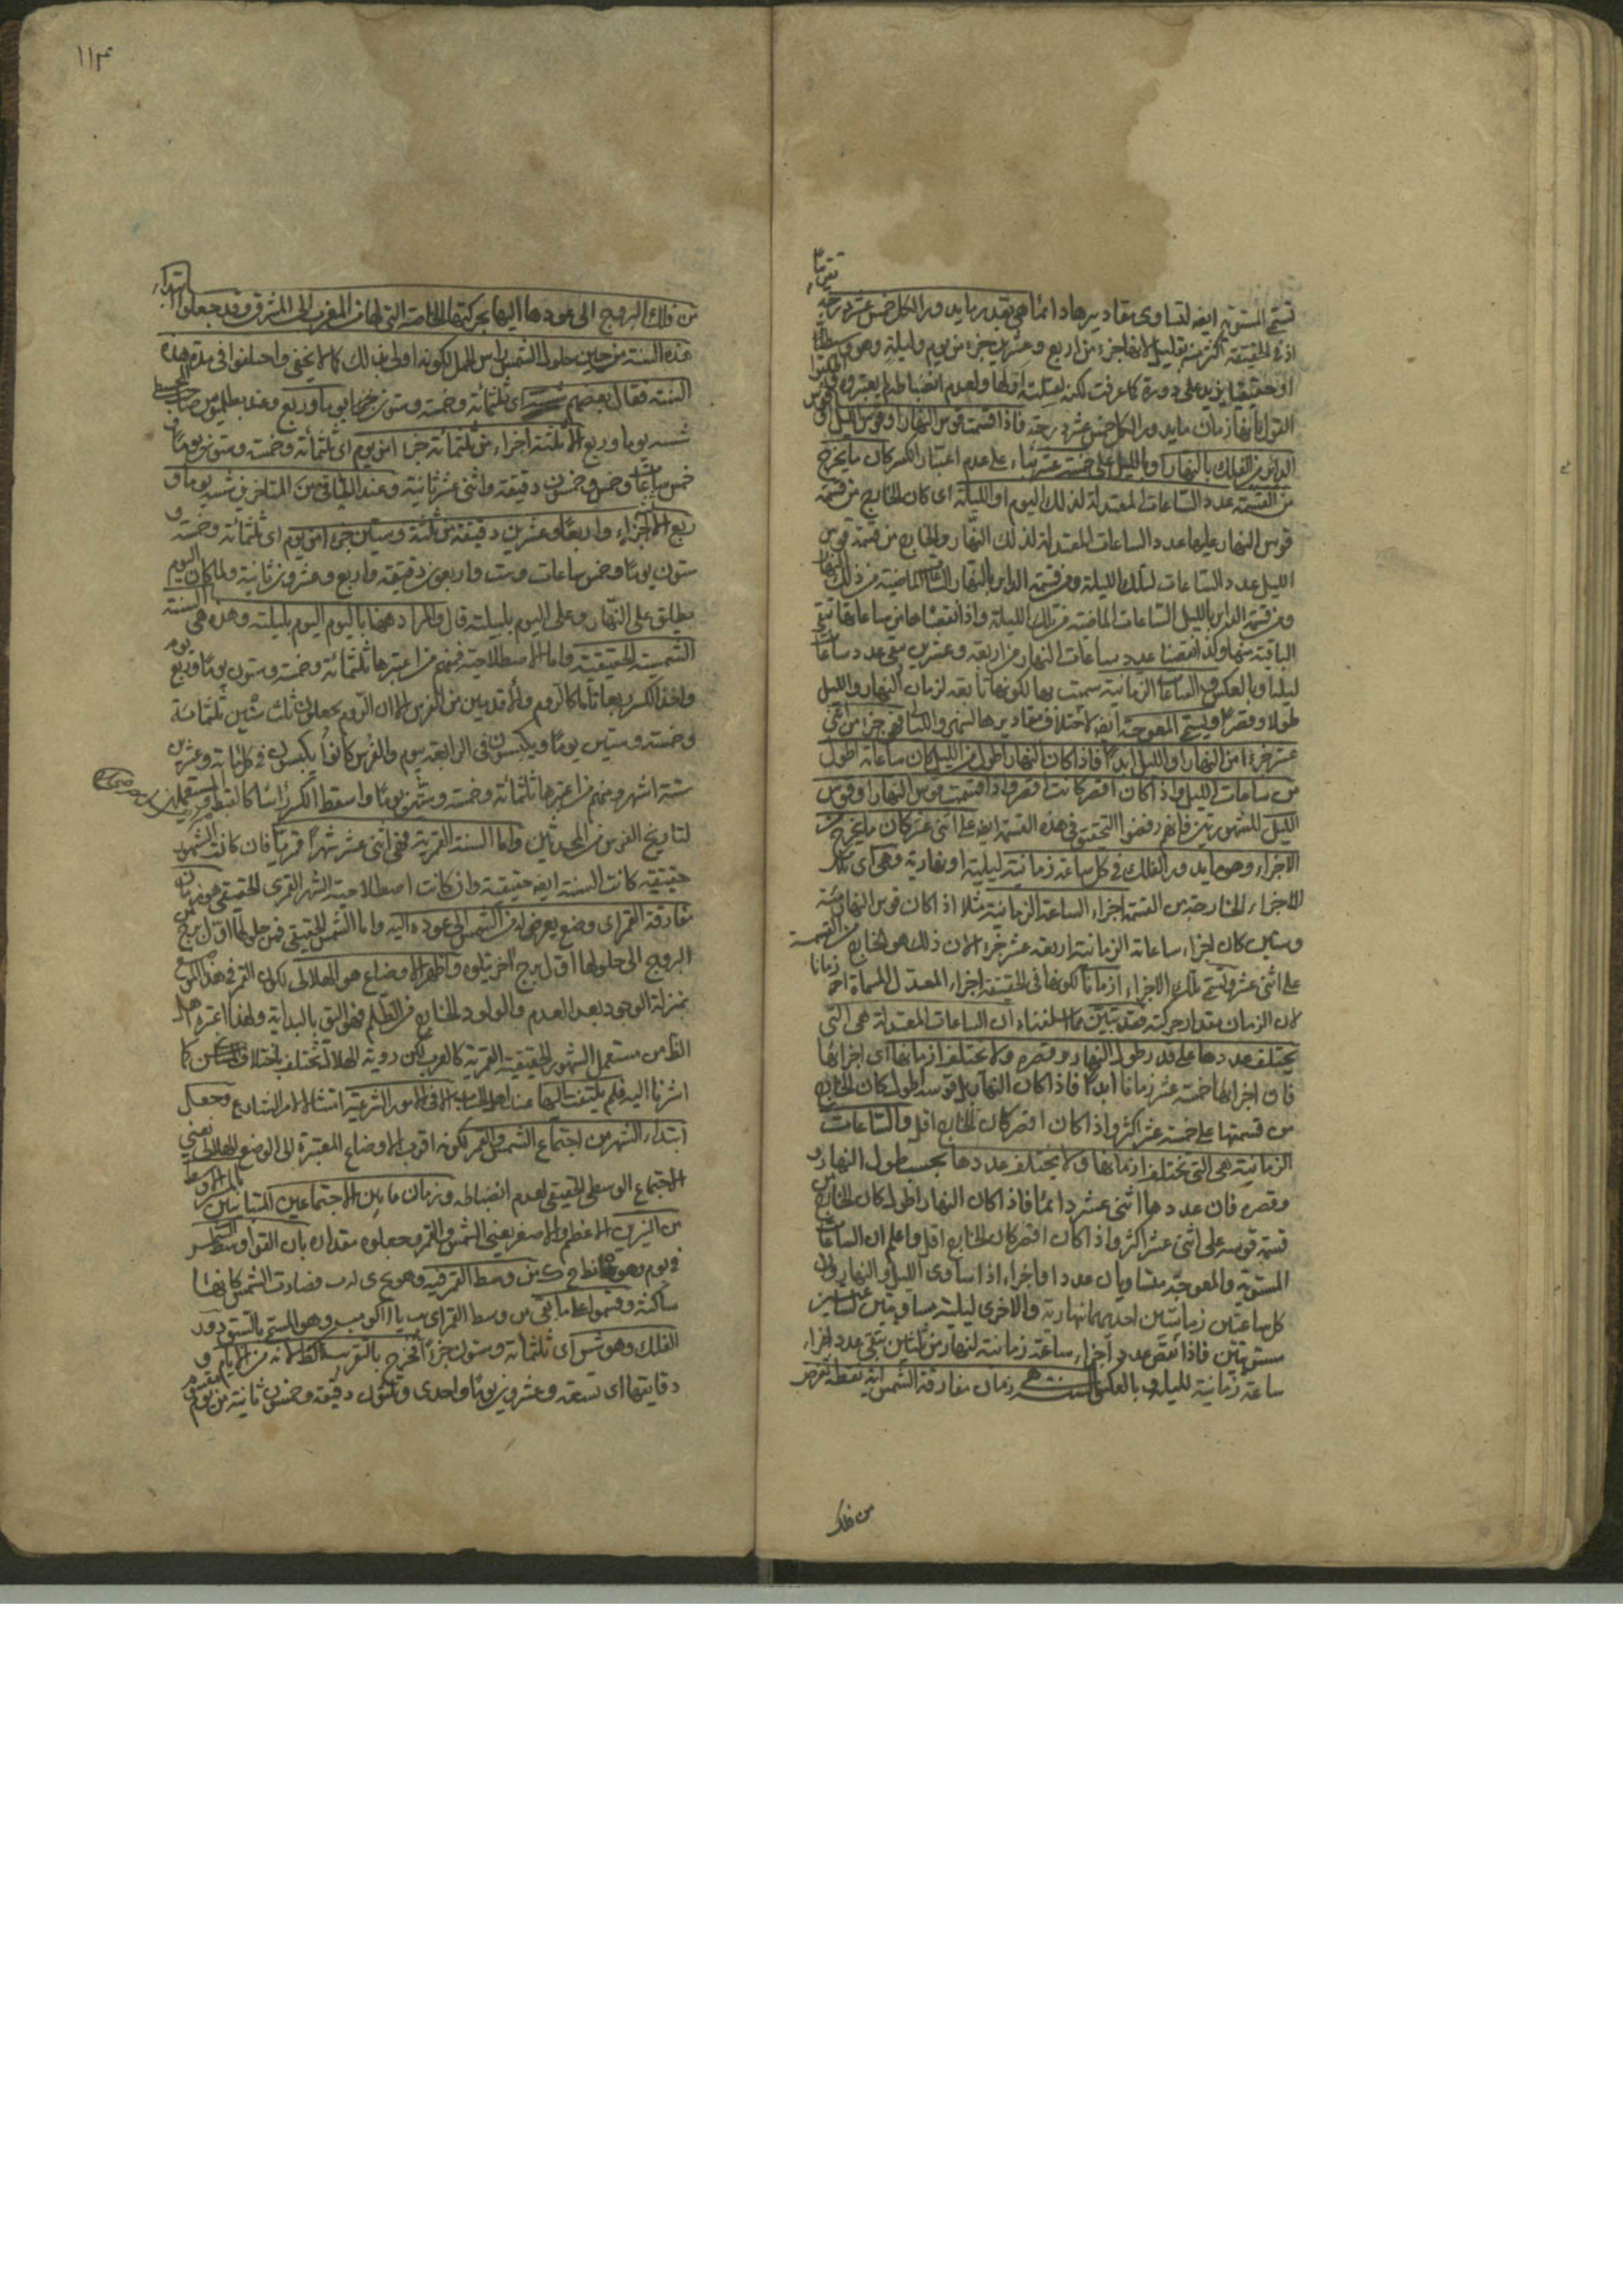 تسمى المستوية ايضا لتساوى مقاديرها دائما هى بقدر ما يدور الكل خمس عشرة درجة
تقريبا
اذ فى الحقيقة اكثر منه بقليل لانها جزء من اربع وعشرين جزء من يوم وليلة وهو
او حقيقيا يزيد على دورة كما عرفت لكنه لقلته ولعدم انضباطه لم يعتبروه
القول بانها زمان ما يدور الكل خمس عشرة درجة فاذا قسمت قوس النهار او قوس الليل او
الدائر من الفلك بالنهار او بالليل على خمسة عشر بناء على عدم اعتبار الكسر كان ما يخرج
من القسمة عدد الساعات المعتدلة لذلك اليوم او الليلة اى كان الخارج من قسمة
قوس النهار عليها عدد الساعات المعتدلة لذلك النهار والخارج من قسمة قوس
الليل عدد الساعات لتلك الليلة ومن قسمة الدائر بالنهار الساعات الماضية من ذلك النهار
ومن قسمة الدائر بالليل الساعات الماضية من تلك الليلة واذا نقصناها من ساعاتها تبقى
الباقية منها وكذا نقصنا عدد ساعات النهار من اربعة وعشرين بقى عدد ساعات
ليلها وبالعكس والساعات الزمانية سميت بها لكونها تابعة لزمان النهار والليل
طولا وقصرا ويسمى المعوجة ايضا لاختلاف مقاديرها هى جزء من اثنى
عشر جزءا من النهار او الليل ابدا فاذا كان النهار اطول من الليل كان ساعاته اطول
من ساعات الليل واذا كان اقصر كانت اقصر واذا قسمت قوس النهار او قوس
الليل فانهم رفضوا التحقيق فى هذه القسمة ايضا على اثنى عشر كان ما يخرج من
الاجزاء وهو ما يدور الفلك فى كل ساعة زمانية ليلية او نهارية وهى اى تلك
الاجزاء الخارجة من القسمة اجزاء الساعة الزمانية مثلا اذا كان قوس النهار مئة
وستين كان اجزاء ساعاته الزمانية اربعة عشر جزء لان ذلك هو الخارج من القسمة
على اثنى عشر وتسمى تلك الاجزاء ازمانا لكونها فى الحقيقة اجزاء المعدل المسماة ازمانا
لان الزمان مقدار حركته فقد تبين مما اسلفناه ان الساعات المعتدلة هى التى
يختلف عددها على قدر طول النهار وقصره ولا يختلف ازمانها اى اجزائها
فان اجزائها خمسة عشر زمانا ابدا فاذا كان النهار بل قوسه اطول كان الخارج
من قسمتها على خمسة عشر اكثر واذا كان اقصر كان الخارج اقل والساعات
الزمانية هى التى تختلف ازمانها ولا يختلف عددها بحسب طول النهار
وقصره فان عددها اثنى عشر دائما فاذا كان النهار اطول كان الخارج من
قسمة قوسه على اثنى عشر اكثر واذا كان اقصر كان الخارج اقل واعلم ان الساعات
المستوية والمعوجة متساويان عددا واجزاء اذا ساوى الليل والنهار وان
كل ساعتين زمانيتين احديهما نهارية والاخرى ليلية مساويتين لساعتين
مستويتين فاذا نقص عدد اجزاء ساعة زمانية لنهار من ثلثين تبقى عدد اجزاء
ساعة زمانية لليله وبالعكس السنة هى زمان مفارقة الشمس اية نقطة تفرض
من فلك
١١٣
من فلك البروج الى عودها اليها بحركتها الخاصة التى لها من المغرب الى المشرق وقد جعلوا ابتداء
هذه السنة من حين حلول الشمس راس الحمل كما لا يخفى واختلفوا فى مدة هذه
السنة فقال بعضهم اى ثلثمائة وخمسة وستون يوما وربع وعند بطلميوس صاحب المجسطى
شسه يوما وربع الا ثلثة اجزاء من ثلثمائة جزء من يوم اى ثلثمائة وخمسة وستون يوما و
خمس ساعات وخمس وخمسون دقيقة واثنى عشر ثانية وعند من المتأخرين شسه يوما و
ربع الا اجزاء واربعا وعشرين دقيقة من ثلثة وستين جزء من يوم اى ثلثمائة وخمسة و
ستون يوما وخمس ساعات وست واربعون دقيقة واربع وعشرون ثانية ولما كان اليوم
يطلق على النهار وعلى اليوم بليلته قال والمراد ههنا باليوم اليوم بليلته وهذه هى السنة
الشمسية الحقيقية واما الاصطلاحية فمنهم من اعتبرها ثلثمائة وخمسة وستون يوما وربع يوم
واخذ الكسر ربعا تاما كالروم والاقدمين من الفرس الا ان الروم يجعلون ثلث سنين ثلثمائة
وخمسة وستين يوما ويكبسون فى الرابعة بيوم والفرس كانوا يكبسون فى كل مائة وعشرين
سنة اشهر ومنهم من اعتبرها ثلثمائة وخمسة وستين يوما واسقط الكسر راسا كالقبط والمستعملين
لتاريخ الفرس من المحدثين واما السنة القمرية فهى اثنى عشر شهرا قمريا فان كانت الشهور
حقيقية كانت السنة ايضا حقيقية وان كانت اصطلاحية الشهر القمرى الحقيقى هو زمان
مفارقة القمر اى وضع يعرض له من الشمس الى عوده اليه واما الشمسى الحقيقى فمن حلولها اول برج من
البروج الى حلولها اول برج اخر يتلوه واظهر الاوضاع هو الهلالى لكون القمر فى هذا الوضع
بمنزلة الوجود بعد العدم والمولود الخارج من الظلم فهو اليق بالبداية ولهذا اعتبره اهل
الظاهر من مستعملى الشهور الحقيقية القمرية كالعرب لكن رؤية الهلال تختلف باختلاف المساكن كما
اشرنا اليه فلم يلتفت اليها عند اهل الحساب الا فى الامور الشرعية امتثالا لامر الشارع وجعل
ابتداء الشهر من اجتماع الشمس والقمر لكونه اقرب الاوضاع المعتبرة الى الوضع الهلالى يعنى
الاجتماع الوسطى الحقيقى لعدم انضباطه وزمان ما بين الاجتماعين المتتاليين
من النيرين الاعظم والاصغر يعنى الشمس والقمر وجعلوه مقداره بان القوا وسط الشمس
فى يوم وهو من وسط القمر فيه وهو فصارت الشمس كانها
ساكنة وقسموا على ما بقى من وسط القمر اى وهو المسمى بالسبق دور
الفلك وهو شس اى ثلثمائة وستون جزءا فخرج بالتقريب كط لا من الايام و
دقايقها اى تسعة وعشرون يوما واحدى وثلثون دقيقة وخمسون ثانية من يوم